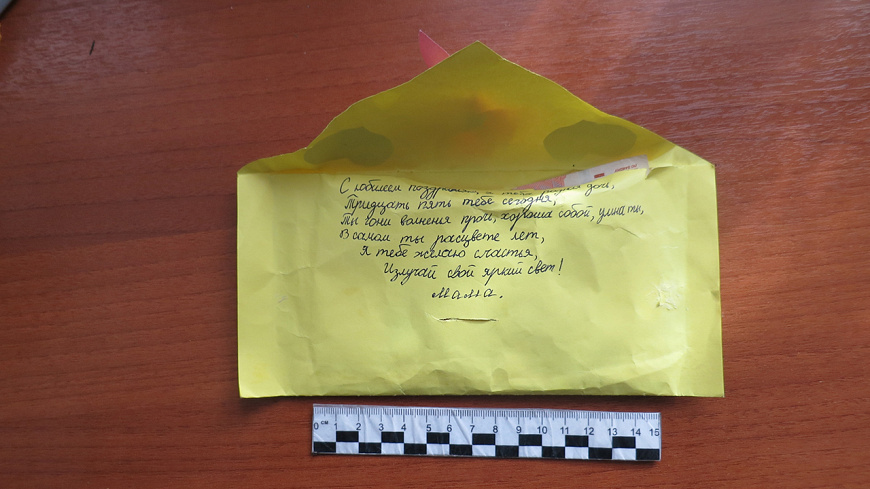 С юбилеем
Тридцать пять тебе сегодня,
Ты гони волнения прочь, хороша собой, умна ты,
В самом ты расцвете лет,
Я тебе желаю счастья,
Излучай свой яркий свет!
Мама.
0 см 1 2 3 4 5 6 7 8 9 10 11 12 13 14 15